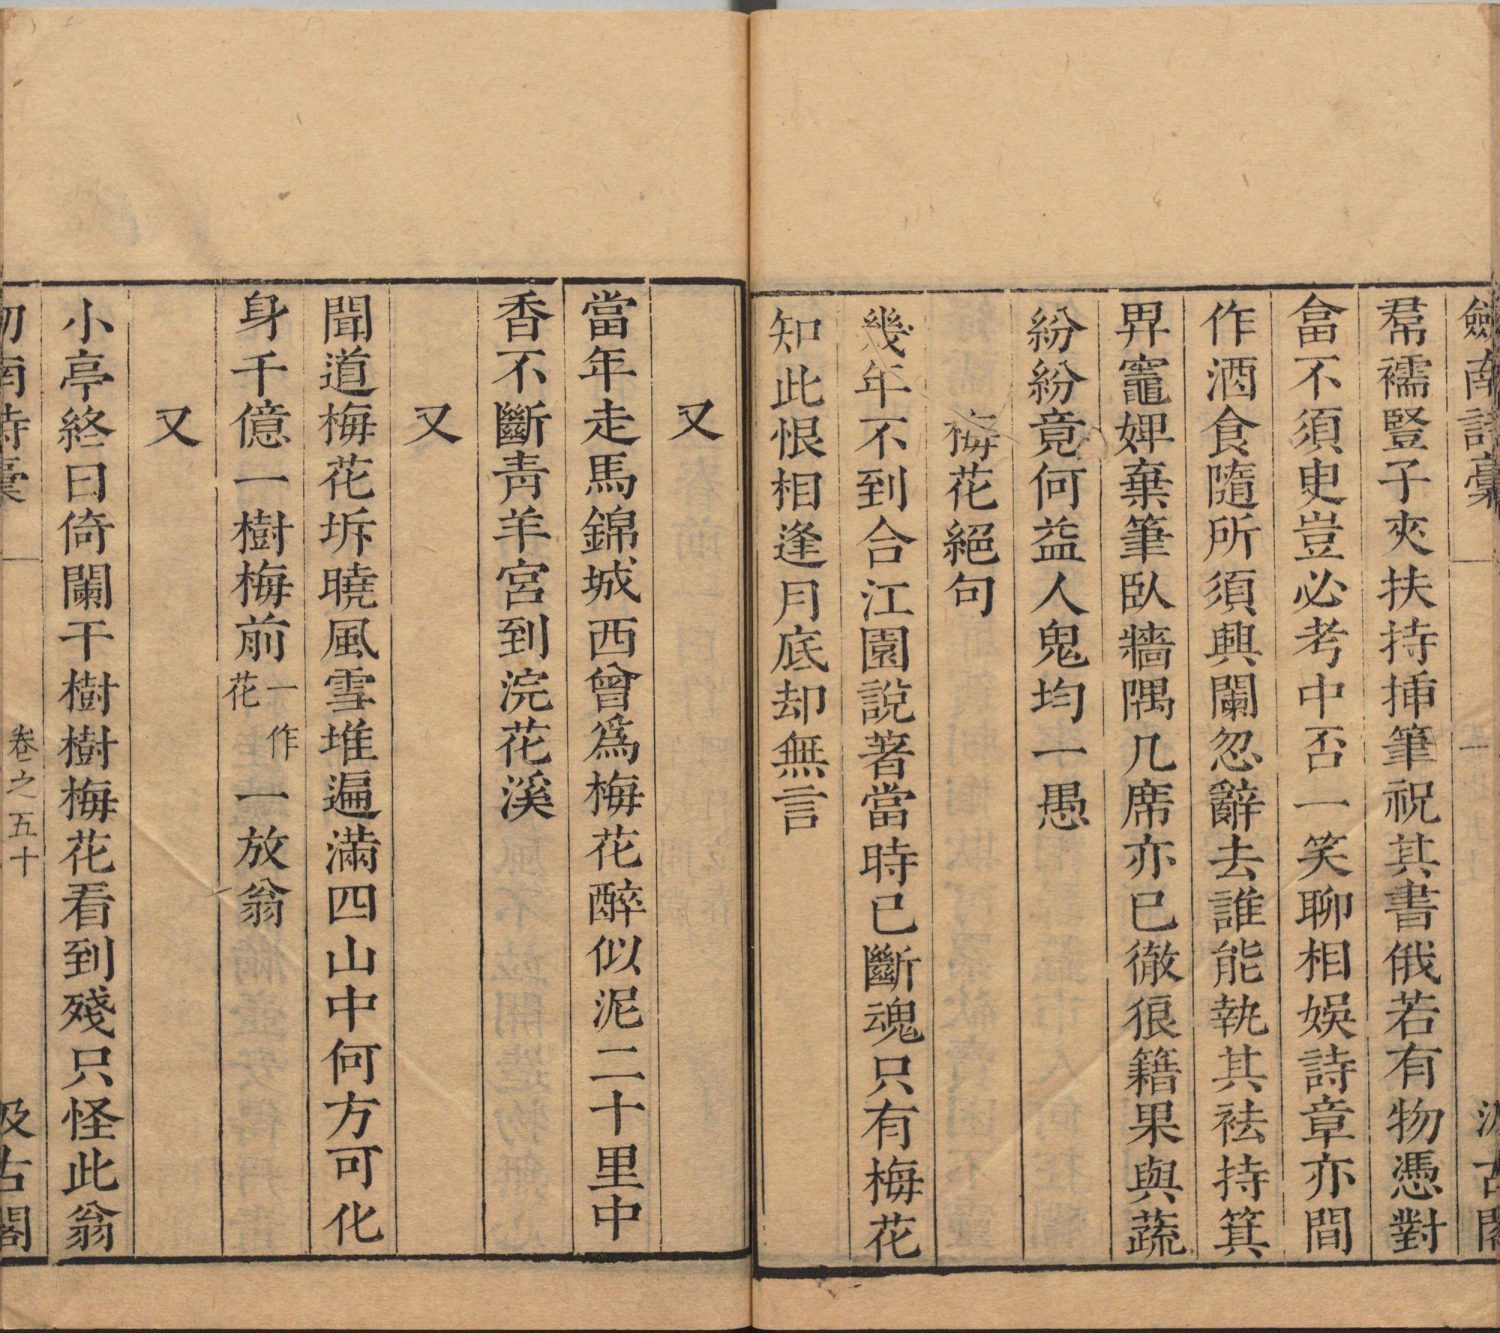 劒南詩稾 一 汲古閣
帬襦豎子夾扶持揷筆祝其書俄若有物憑對
畣不須臾豈必考中否一笑聊相娛詩章亦間
作酒食隨所須興闌忽辭去誰能執其袪持箕
畀竈婢棄筆臥牆隅几席亦已徹狼籍果與蔬
紛紛竟何益人鬼均一愚
梅花絕句
幾年不到合江園說著當時已斷魂只有梅花
知此恨相逢月底却無言
又
當年走馬錦城西曾爲梅花醉似泥二十里中
香不斷青羊宮到浣花溪
又
聞道梅花坼曉風雪堆遍滿四山中何方可化
身千億一樹梅前一作花一放翁
又
小亭終日倚闌干樹樹梅花看到殘只怪此翁
劒南詩稾 卷之五十 汲古閣